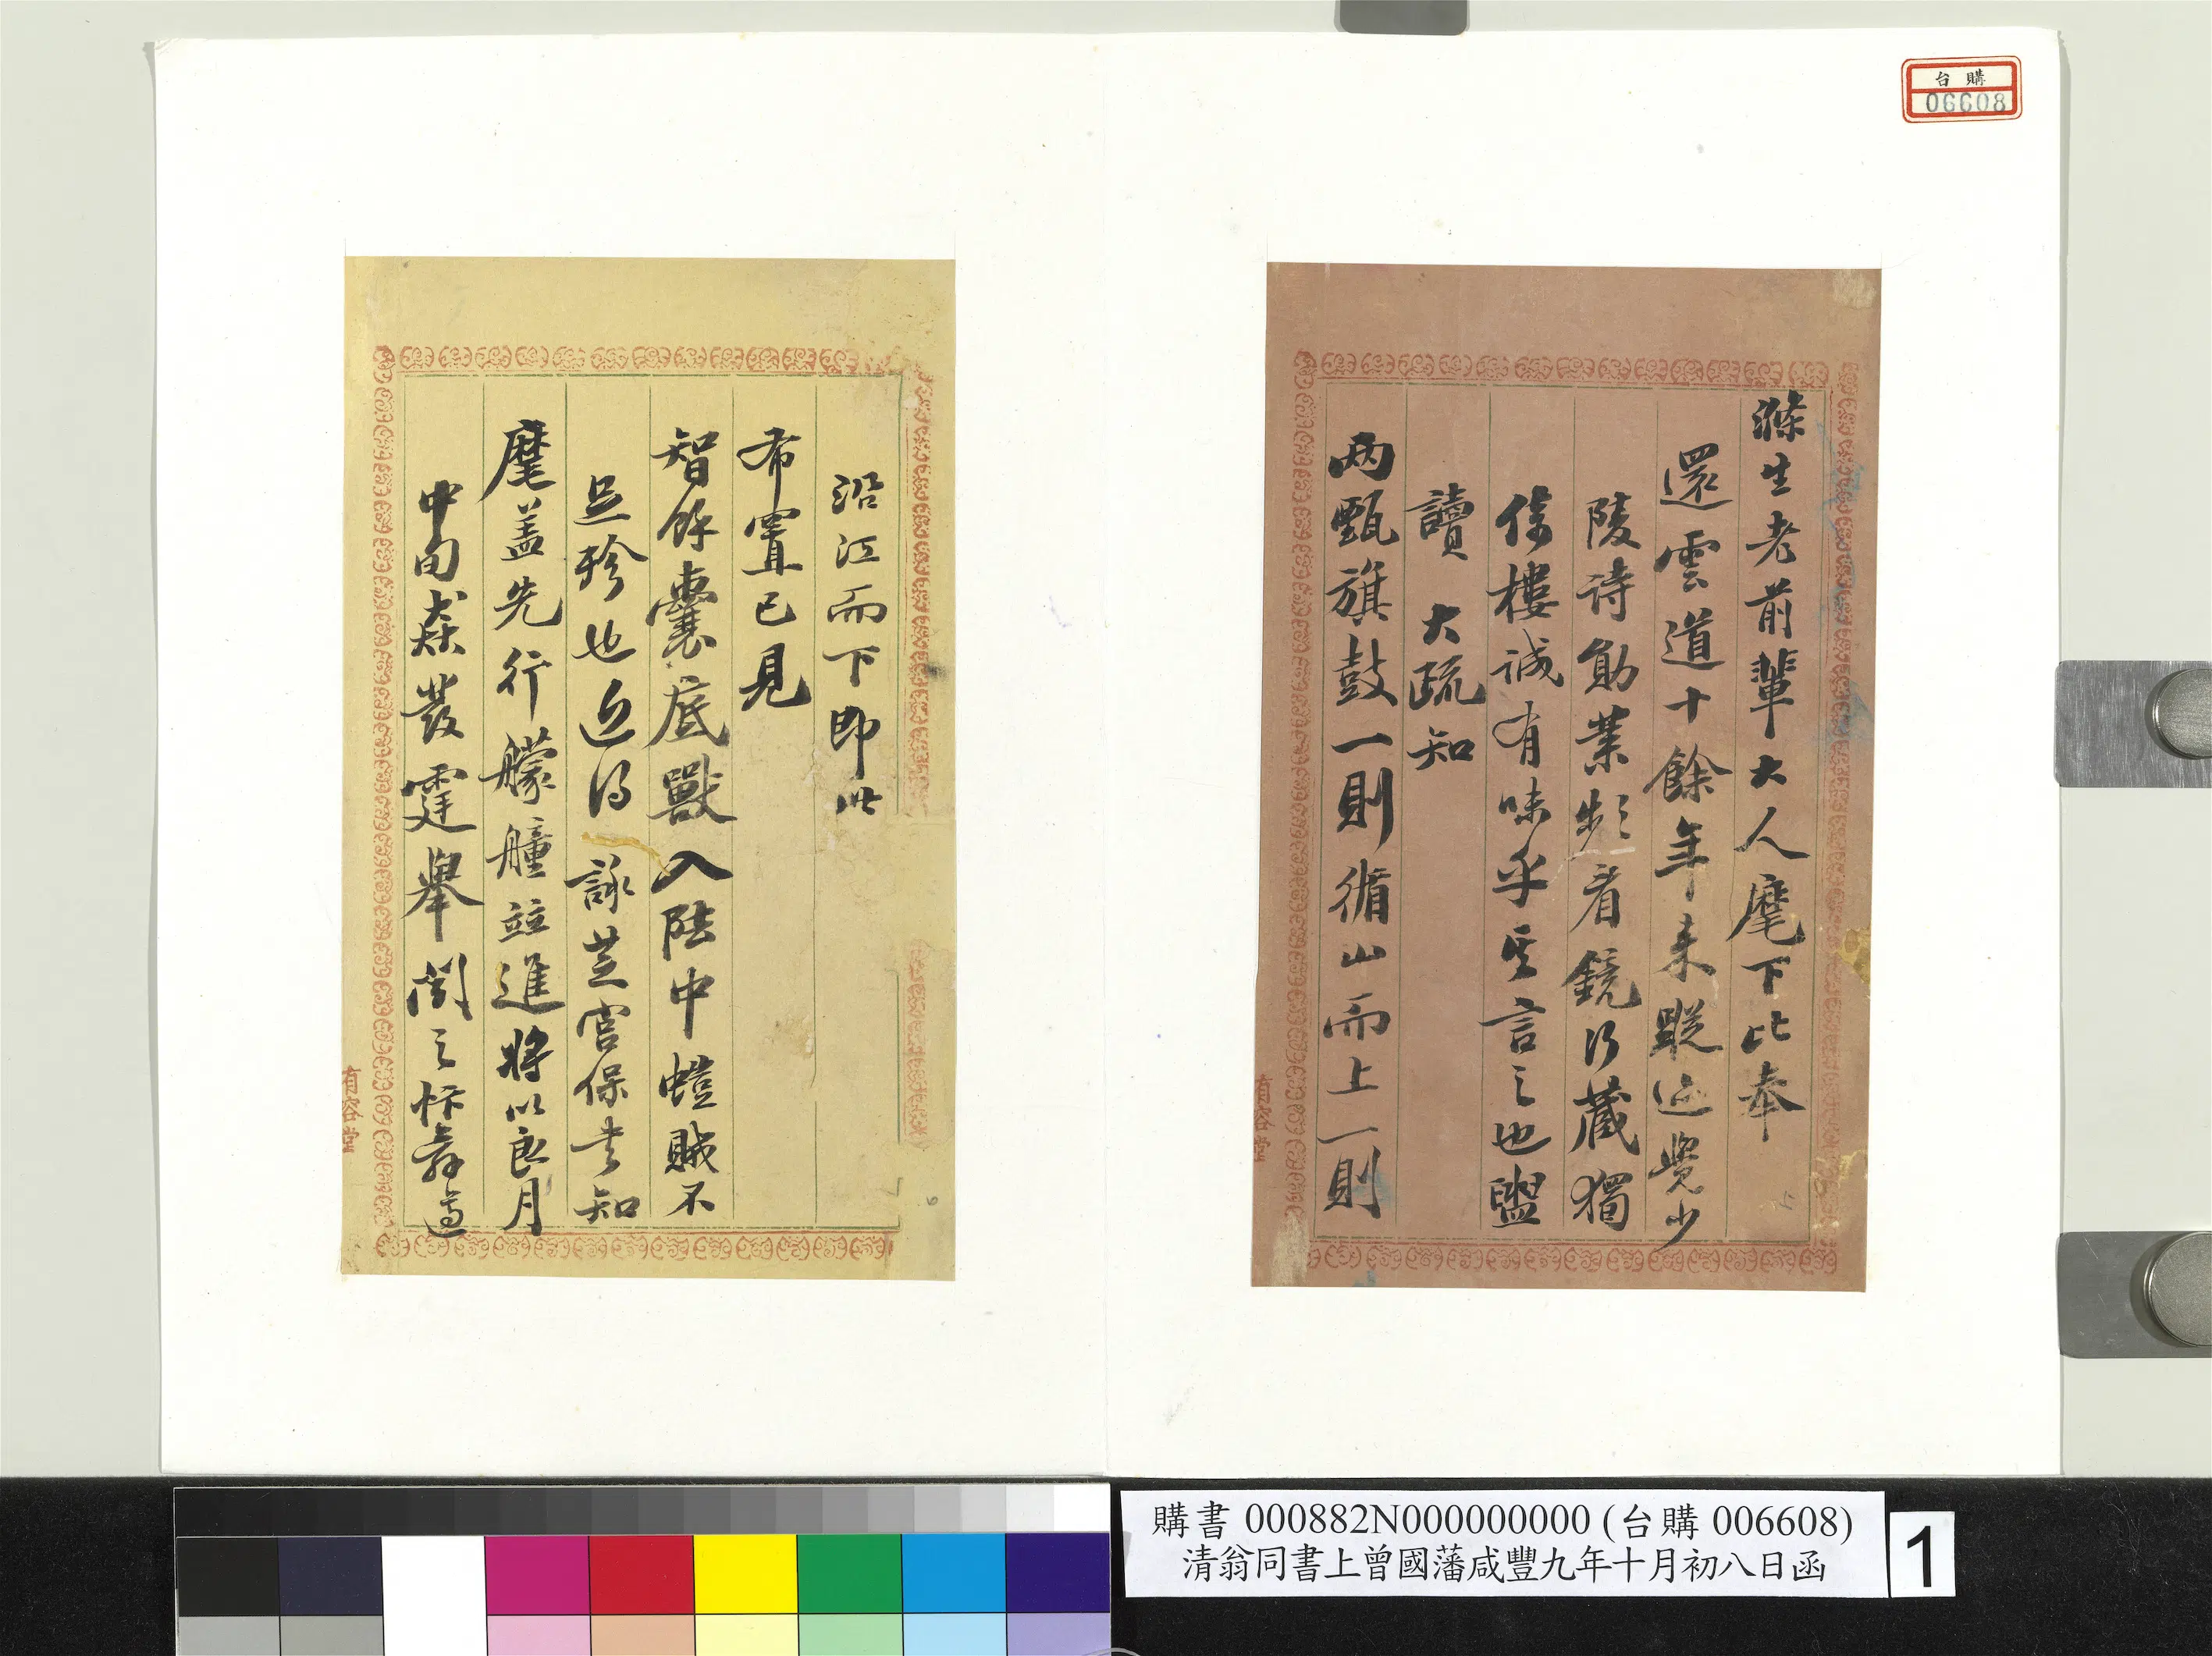 台購
06608
滌生老前輩大人麾下比奉
還雲道十餘年來蹤迹覺少
陵詩勛業頻看鏡行藏獨
倚樓誠有味乎其言之也盥
讀 大疏知
兩甄旗鼓一則循山而上一則
有容堂
沿江而下即此
布置已見
智餘囊底獸入陸中螘賊不
足殄也近得 詠芝宮保書知
麾蓋先行艨艟竝進將以良月
中旬猋發霆舉聞之忭舞適
有容堂
購書 000882N000000000 (台購 006608)
清翁同書上曾國藩咸豐九年十月初八日函
1